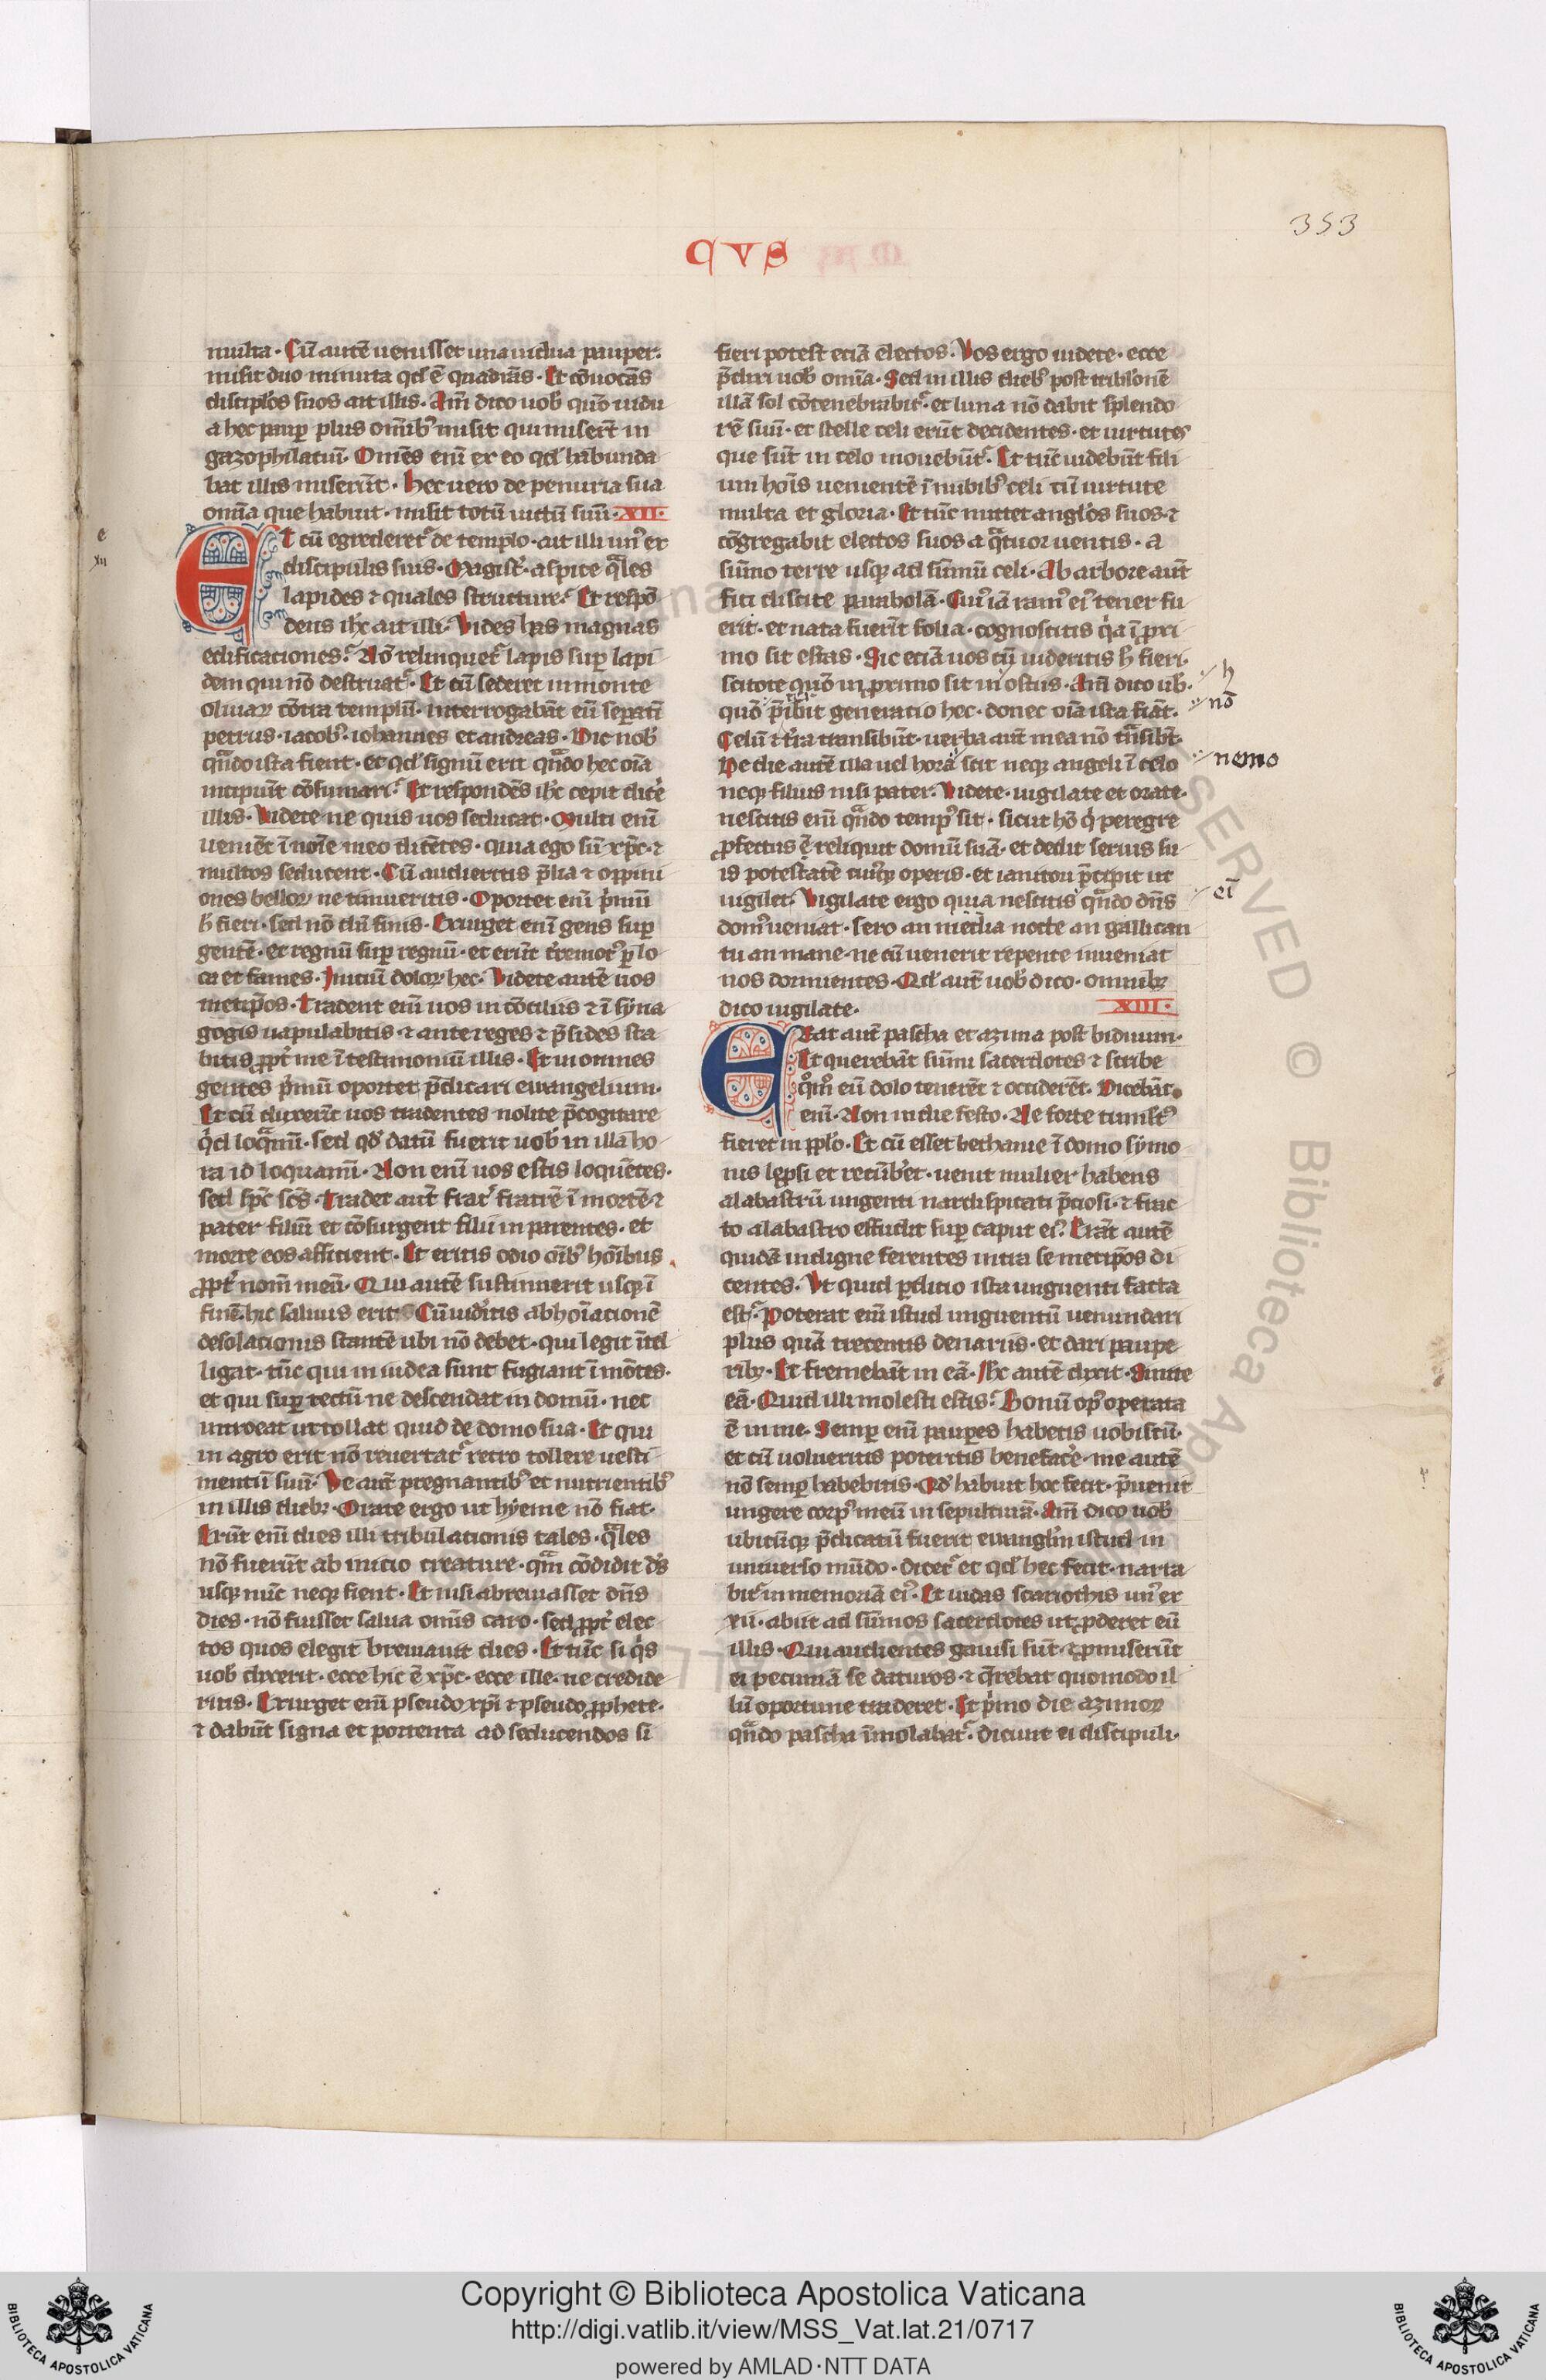 353
CVS
multa · Cū autē uenisset una uidua pauper·
misit duo minuta qd' ē quadrās · Et cōuocās
discipl'os suos ait illis · Am̄ dico uob' qm̄ uidu
a hec paup̄ plus om̄ib' misit qui miser̄t in
gazophilatiū· Om̄es enī ex eo qd' habunda
bat illis miserūt · hec uero de penuria sua
om̄ia que habuit · misit totū uictū suū· XII·
e
xii
Et cū egrederet' de templo · ait illi un' ex
discipulis suis · Magist'· aspice q̄les
lapides ⁊ quales structure· Et respō
dens ih̄c ait illi· Vides has magnas
edificationes· Nō relinquet' lapis sup̄ lapi
dem qui nō destruat' · Et cū sederet in monte
oliuaꝝ cōtra templū· interrogabāt eū sep̄atī
petrus · iacob'· iohannes et andreas · Dic nob'
qn̄do ista fient · et qd' signū erit qn̄do hec oīa
incipiūt cōsumari· Et respondēs ih̄c cepit dic'e
illis · Videte ne quis uos seducat · Multi enī
ueniēt ī noīe meo dicētes · quia ego sū xp̄c · ⁊
multos seducent · Cū audieritis p̄lia ⁊ oppini
ones belloꝝ ne timueritis · Oportet enī p'mū
h̄ fieri · sed nō dū finis · Exurget enī gens sup̄
gentē · et regnū sup̄ regnū · et erūt t'remot' p̄ lo
ca et fames · Iniciū doloꝝ hec · Videte autē uos
metip̄os · Tradent enī uos in cōciliis ⁊ ī syna
gogis uapulabitis · ⁊ ante reges ⁊ p̄sides sta
bitis ꝓpt' me ī testimoniū illis · Et in omnes
gentes p'mū oportet p̄dicari ewangelium·
Et cū duxerīt uos tradentes nolite p̄cogitare
q'd loq̄mī · sed qd' datū fuerit uob' in illa ho
ra id loquamī · Non enī uos estis loquētes·
sed sp̄c sc̄s · Tradet aut' frat' fratrē ī mortē · ⁊
pater filiū et cōsurgent filii in parentes · et
morte eos afficient · Et eritis odio oīb' hoībus
ꝓpt' nom̄ meū · Qui autē sustinuerit usq; ī
finē · hic saluus erit · Cū uid'itis abhoīacionē
desolacionis stantē ubi nō debet · qui legit ītel
ligat · tūc qui in iudea sunt fugiant ī mōtes·
et qui sup̄ tectū ne descendat in domū · nec
introeat ut tollat quid de domo sua · Et qui
in agro erit nō reuertat' retro tollere uesti
mentū suū· Ve aut' pregnantib' et nutrientib'
in illis dieb; · Orate ergo ut hyeme nō fiat·
Erūt enī dies illi tribulationis tales · q̄les
nō fuerūt ab inicio creature · qm̄ cōdidit d's
usq; nūc neq; fient · Et nisi abreuiasset dn̄s
dies · nō fuisset salua om̄is caro · sed ꝓpt' elec
tos quos elegit breuiauit dies · Et tūc si q's
uob' dixerit · ecce hic ē xp̄c · ecce ille · ne credide
ritis · Exurget enī pseudo xp̄i ⁊ pseudo ꝓphete·
⁊ dabūt signa et portenta ad seducendos si
fieri potest eciā electos · Vos ergo uidete · ecce
p̄dixi uob' om̄ia · Sed in illis dieb' post tribl'onē
illā sol cōtenebrabit' · et luna nō dabit splendo
rē suū · et stelle celi erūt decidentes · et uirtutes
que sūt in celo mouebūt' · Et tūc uidebūt fili
um hoīs uenientē ī nubib' celi cū uirtute
multa et gloria · Et tūc mittet angl'os suos · ⁊
cōgregabit electos suos a q̄tuor uentis · a
sūmo terre usq; ad sūmū celi · Ab arbore aūt
fici discite parabolā · Cum iā ram' ei' tener fu
erit · et nata fuerīt folia · cognoscitis q'a ī ꝓxi
mo sit estas · Sic eciā uos cū uideritis h̄ fieri·
scitote quō in ꝓximo sit in ostiis · Am̄ dico ub'·
h
quō p̄ibit generatio hec · donec oīa ista fiāt·
nō
Celū ⁊ t'ra transibūt · uerba aut' mea nō t̄nsibt'·
De die autē illa uel hora scit neq; angeli ī celo
nemo
neq; filius nisi pater · Videte · uigilate et orate·
nescitis enī qn̄do temp' sit · sicut hō q' peregre
ꝓfectus ē reliquit domū suā · et dedit seruis su
is potestatē cui'q; operis · et ianitori p̄cipit ut
uigilet· Vigilate ergo quia nescitis qn̄do dn̄s
eī
dom' ueniat · sero an media nocte an gallican
tu an mane · ne cū uenerit repente inueniat
uos dormientes · Qd' aut' uob' dico · omnib;
dico uigilate· XIII·
Erat aut' pascha et azima post biduum·
Et querebāt sūmi sacerdotes ⁊ scribe
qōm° eū dolo tenerēt ⁊ occiderēt · Dicebāt
enī · Non in die festo · Ne forte tumlt'
fieret in ppl'o · Et cū esset bethanie ī domo symo
nis lep̄si et recūb'et · uenit mulier habens
alabastrū ungenti nardi spicati p̄ciosi · ⁊ frac
to alabastro effudit sup̄ caput ei'· Erāt autē
quidā indigne ferentes intra se metip̄os di
centes · Vt quid p̄dicio ista unguenti facta
est· Poterat enī istud unguentū uenundari
plus quā trecentis denariis · et dari paupe
rib; · Et fremebāt in eā · Ih̄c autē dixit · Sinite
eā · Quid illi molesti estis· Bonū op' operata
ē in me · Semp̄ enī paup̄es habetis uobiscū·
et cū uolueritis poteritis benefac'e · me autē
nō semp̄ habebitis · Qd' habuit hoc fecit · p̄uenit
ungere corp' meū in sepulturā · Am̄ dico uob'
ubicūq; p̄dicatū fuerit euangl'm istud in
uniuerso mūdo · dicet' et qd' hec fecit · narra
bit' in memoriā ei' · Et iudas scariothis un' ex
xii · abiit ad sūmos sacerdotes ut ꝓderet eū
illis · Qui audientes gauisi sūt · ⁊ ꝓmiserūt
ei pecuniā se daturos · ⁊ q̄rebat quomodo il
lū oportune traderet · Et p'mo die azimoꝝ
qn̄do pascha īmolabāt' · dicunt ei discipuli·
Copyright © Biblioteca Apostolica Vaticana
http://digi.vatlib.it/view/MSS_Vat.lat.21/0717
powered by AMLAD·NTT DATA
BIBLIOTECA APOSTOLICA VATICANA
BIBLIOTECA APOSTOLICA VATICANA